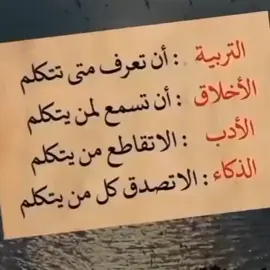 التربية : أن تعرف متى تتكلم
الأخلاق : أن تسمع لمن يتكلم
الأدب : الاتقاطع من يتكلم
الذكاء : الاتصدق كل من يتكلم